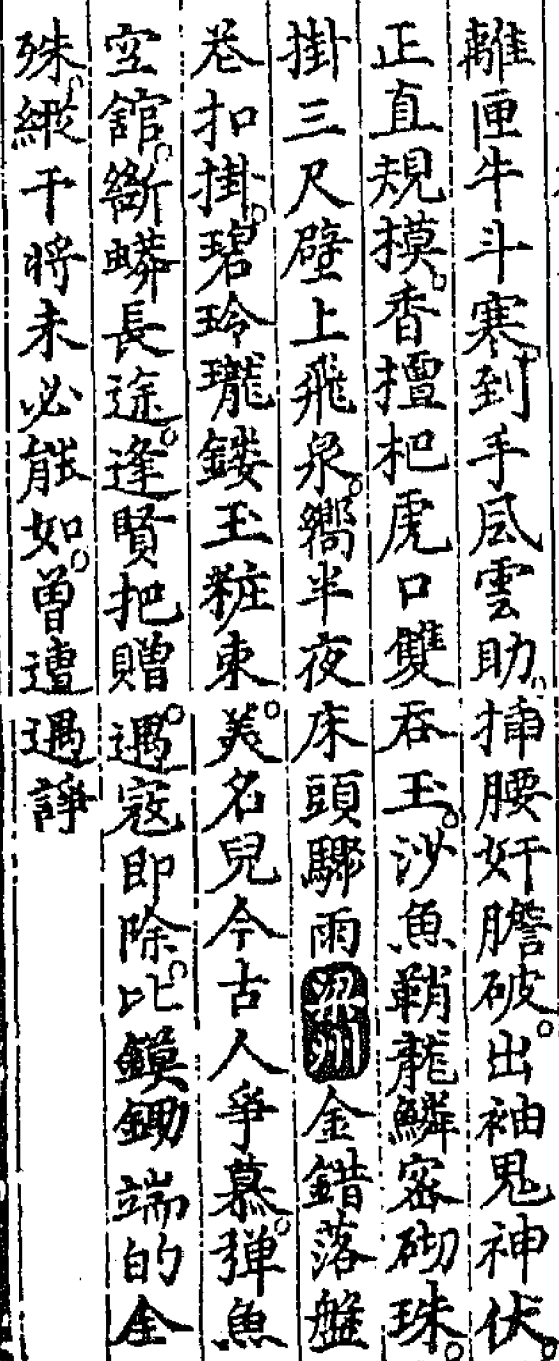 離匣牛斗寒。到手風雲助。揷腰奸膽破。出袖鬼神伏。
正直規摸。香擅杷虎口雙吞玉。沙魚鞘龍鱗密砌珠。
掛三尺壁上飛泉。響半夜床頭驟雨 梁州 金錯落盤
卷扣掛。碧玲瓏鏤玉粧束。美名兒今古人爭慕。彈魚
空舘。斷蟒長途。逢賢把贈。遇寇即除。比鏌鋣端的全
殊。縱干將未必能如。曾遭遇諍